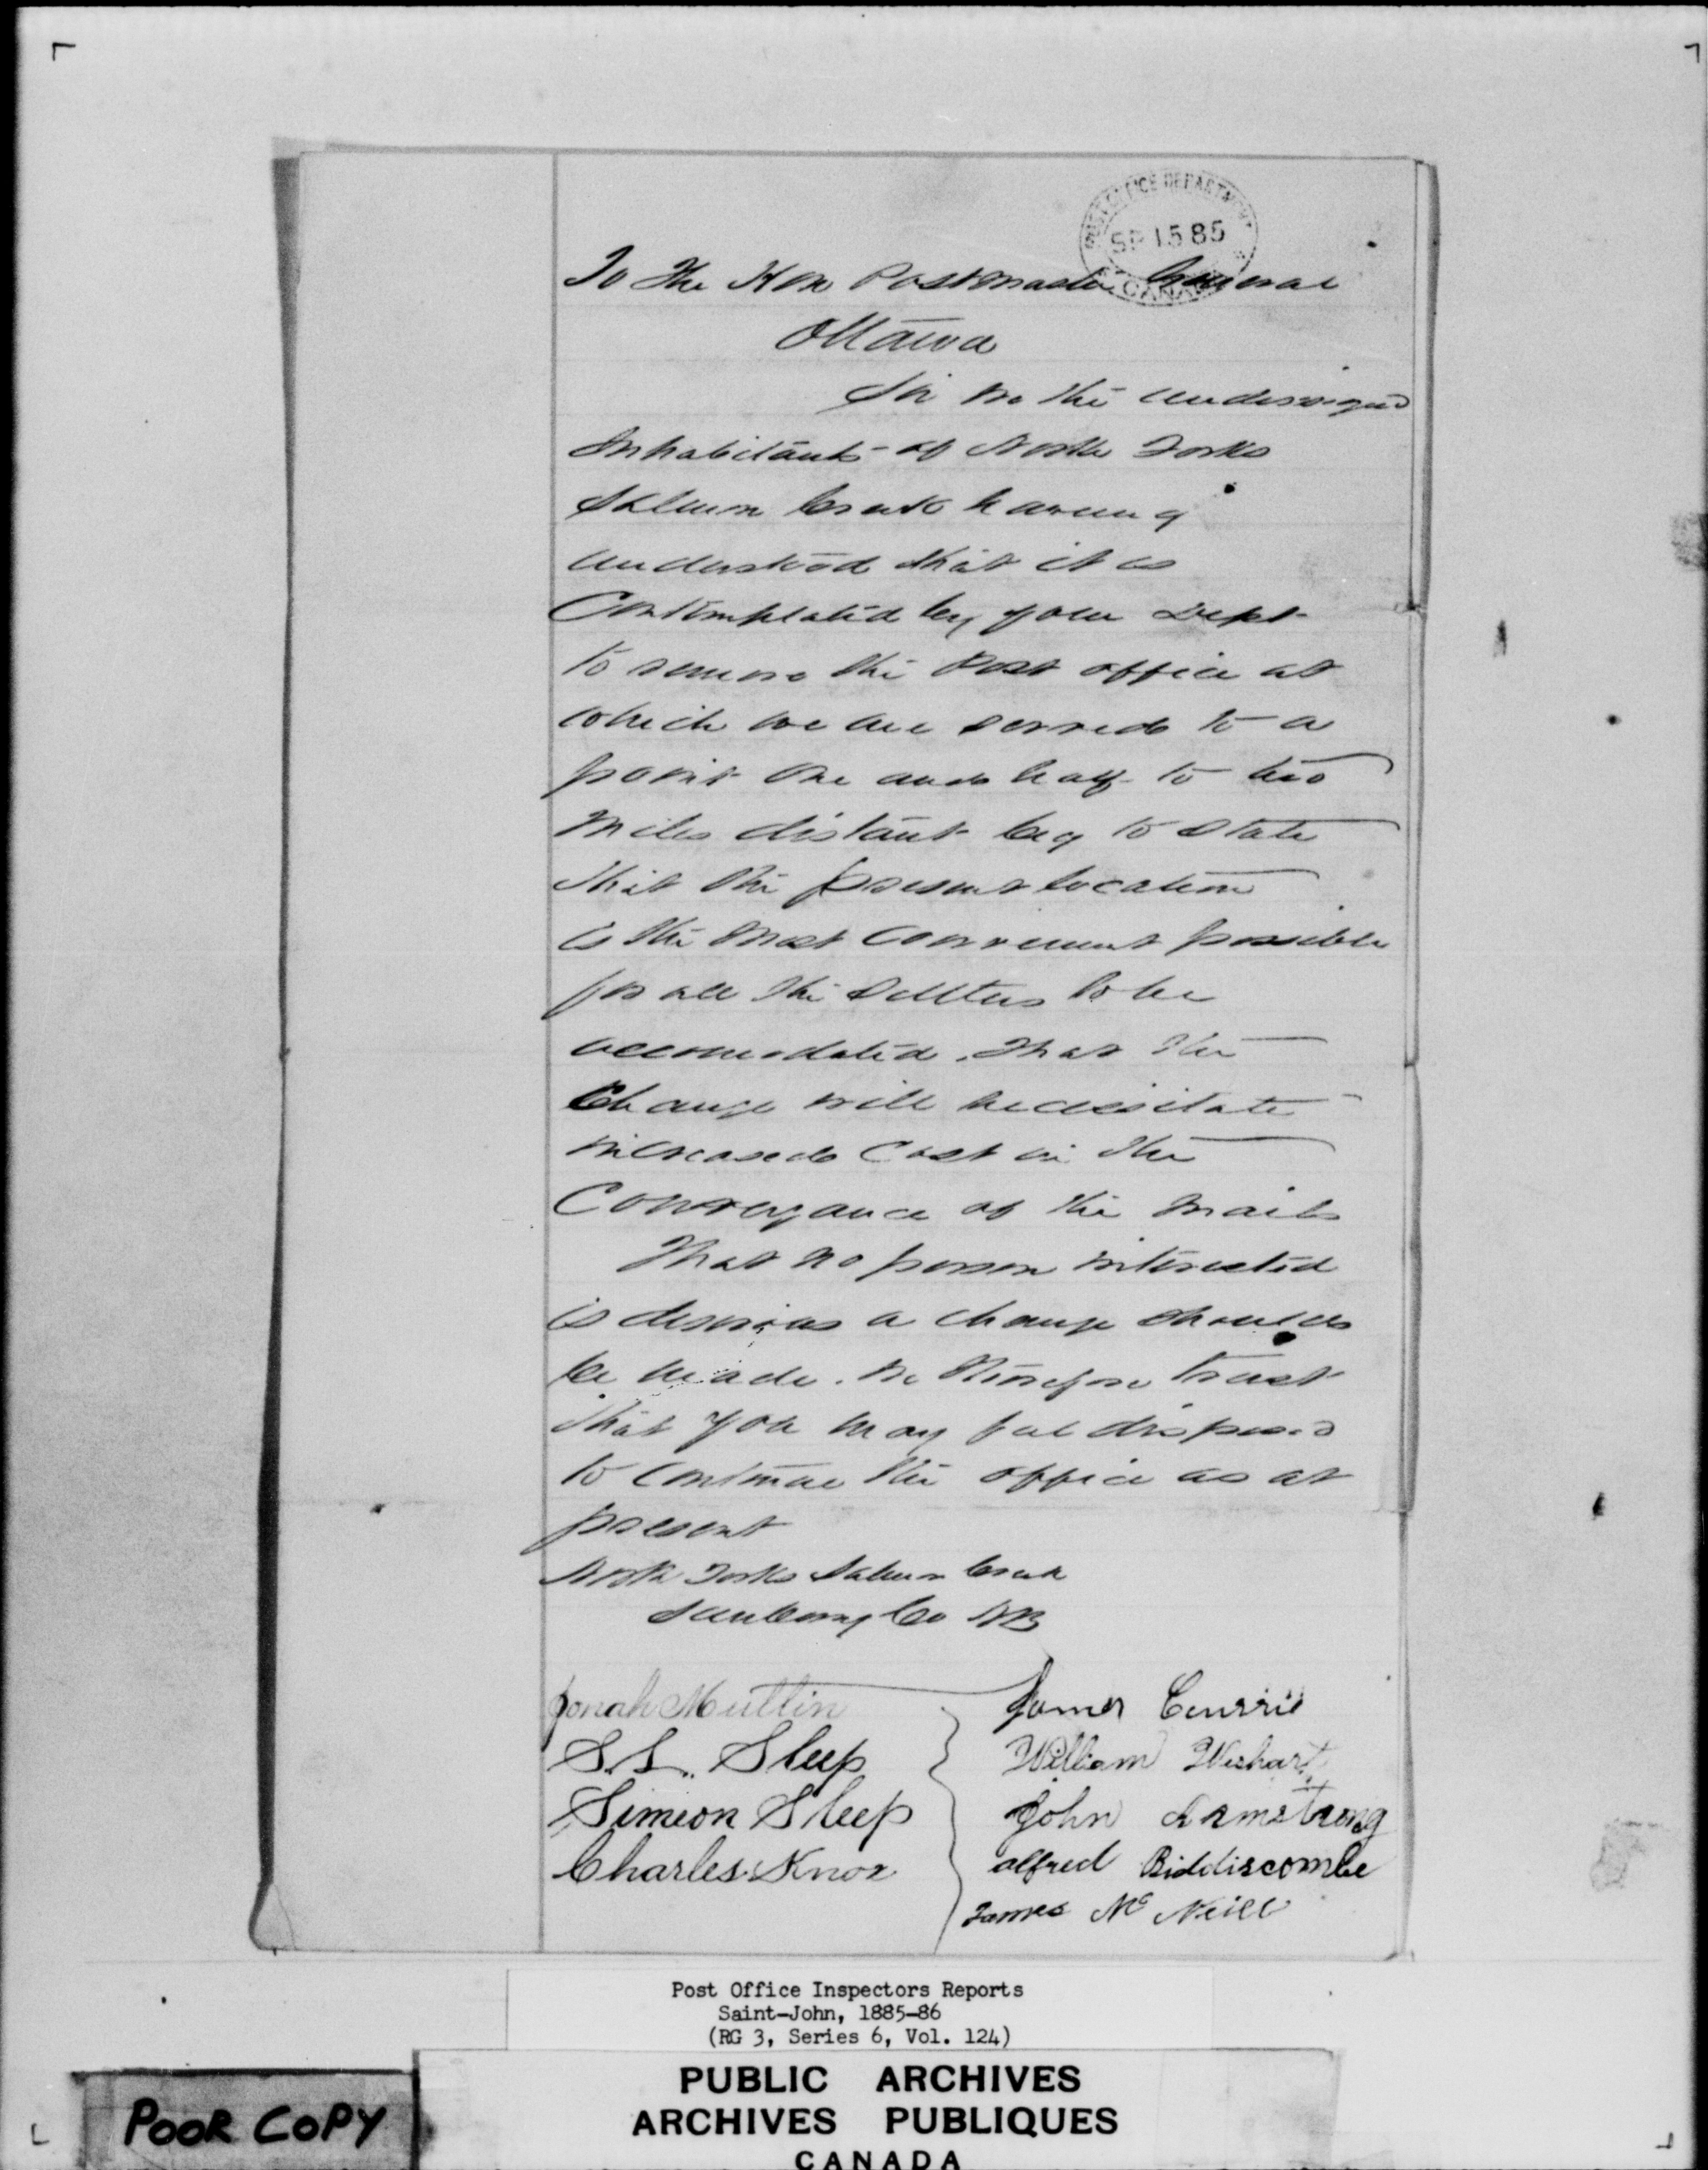 POST OFFICE DEPARTMENT
SP 15 85
CANADA
To the Hon Postmaster General
Ottawa
Sir We the undersigned
Inhabitants of North Forks
Salmon Creek having
understood that it is
Contemplated by your Dept
to remove the Post office at
which we are served to a
point one and half to two
Miles distant beg to state
that the present location
is the most convenient possible
for all the Settlers to be
accomodated. That the
Change will necessitate
increased Cost in the
Conveyance of the Mails
That no person interested
is desirous a change should
be made. We therefore trust
that you may feel disposed
to continue the office as at
present
North Forks Salmon Creek
Sunbury Co NB
Jonah Mullin
James Currie
S. L. Sleep
William Wishart
Simeon Sleep
John Armstrong
Charles Knox
alfred Biddiscombe
James Mc Neill
Post Office Inspectors Reports
Saint-John, 1885-86
(RG 3, Series 6, Vol. 124)
PUBLIC ARCHIVES
ARCHIVES PUBLIQUES
CANADA
POOR COPY